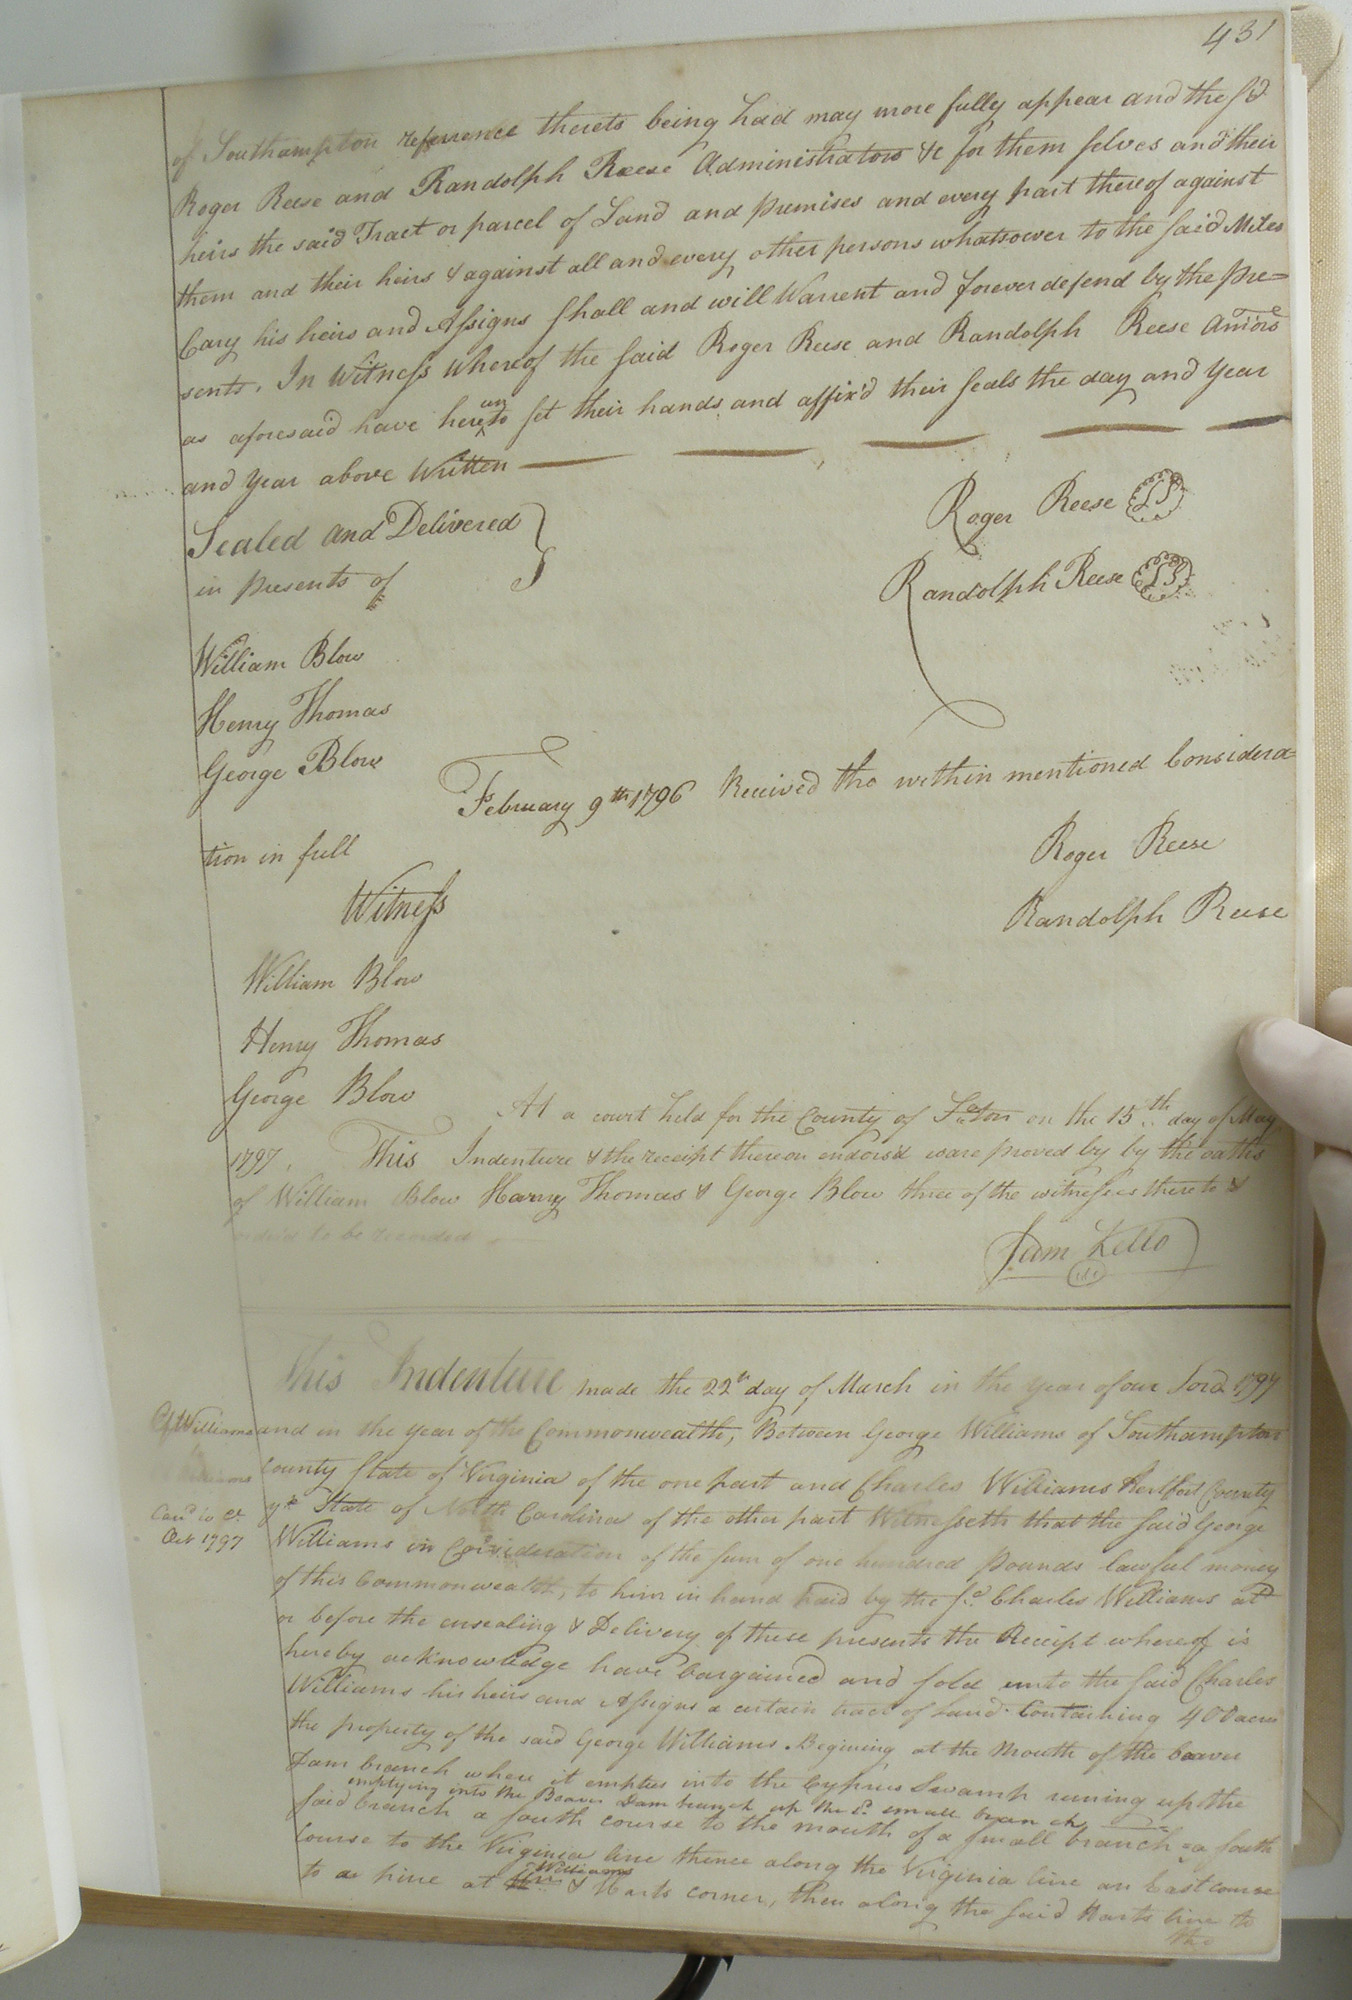 431
of Southampton referrence thereto being had may more fully appear and the sd
Roger Reese and Randolph Reese Administrators &c for them selves and their
heirs the said Tract or parcel of Land and premises and every part thereof against
them and their heirs & against all and every other persons whatsoever to the said Miles
Cary his heirs and Assigns shall and will Warrent and forever defend by the pre=
sents. In Witness Whereof the said Roger Reese and Randolph Reese Admors
as aforesaid have hereunto set their hands and affix'd their seals the day and year
and year above Written
Sealed and Delivered
in presents of
Roger Reese LS
Randolph Reese LS
William Blow
Henry Thomas
George Blow
February 9th 1796 Received the within mentioned Considera=
tion in full
Roger Reese
Randolph Reese
Witness
William Blow
Henry Thomas
George Blow
At a court held for the County of Soton on the 15th day of May
1797. This Indenture & the receipt thereon endors'd ware proved by by the oaths
of William Blow Harny Thomas & George Blow three of the witnesses thereto &
order'd to be recorded
Sam Kello
This Indenture made the 22th day of March in the year of our Lord 1797
and in the year of the Commonwealth, Between George Williams of Southampton
County State of Virginia of the one part and Charles Williams Hertford County
ye State of North Carolina of the other part Witnesseth that the said George
Williams in Consideration of the sum of one hundred pounds lawful money
of this Commonwealth, to him in hand paid by the sd. Charles Williams at
or before the ensealing & Delivery of these presents the Receipt whereof is
hereby acknowledge have bargained and sold unto the said Charles
Williams his heirs and Assigns a certain tract of Land Containing 400 acres
the property of the said George Williams. Begining at the Mouth of the beaver
Dam branch where it empties into the Cyprus Swamp runing up the
said branch a south course to the mouth of a small branch emptying into the Beaver Dam branch up the sd. small branch = a South
Course to the Virginia line thence along the Virginia line an East course
to a pine at Williams & Harts corner, then along the said Harts line to
the
G Williams
Williams
Oct 1797